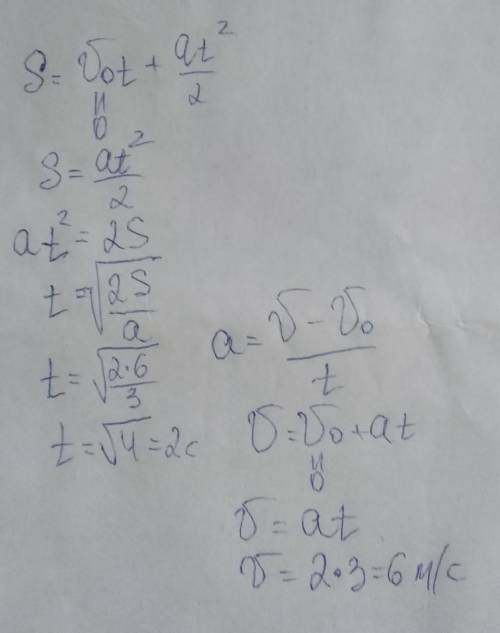 S = v₀t + at²/2
=
0
S = at²/2
at² = 2S
t = √(2S/a)
t = √(2·6/3)
t = √4 = 2с
a = (v - v₀)/t
v = v₀ + at
=
0
v = at
v = 2·3 = 6 м/с